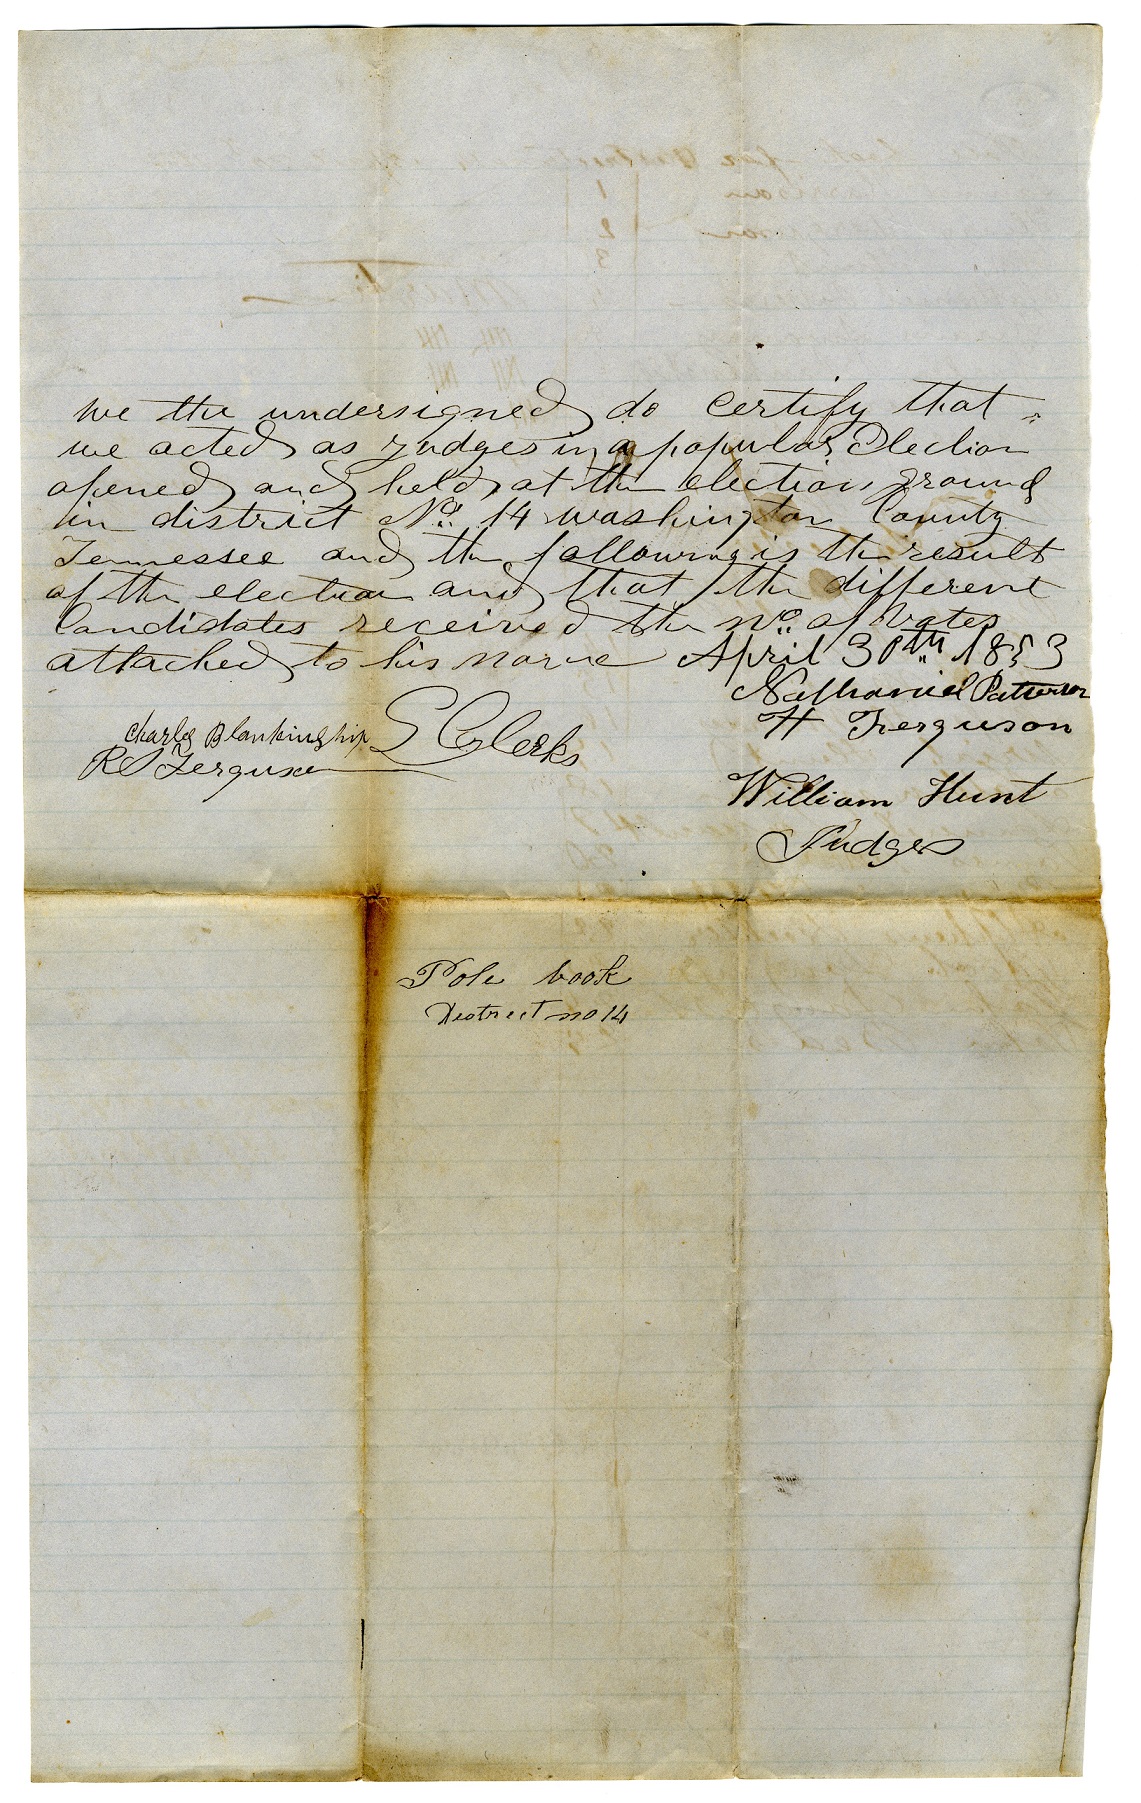 we the undersigned do certify that
we acted as Judges in a popular Election
opened and held at the election ground
in district No. 14 washington County
Tennessee and the following is the result
of the election and that the different
Candidates received the no. of Votes
attached to his name April 30th 1853
Nathaniel Patterson
H Ferguson
Charles Blankinship
Clerks
R S Ferguson
William Hunt
Judges
Pole book
District no 14